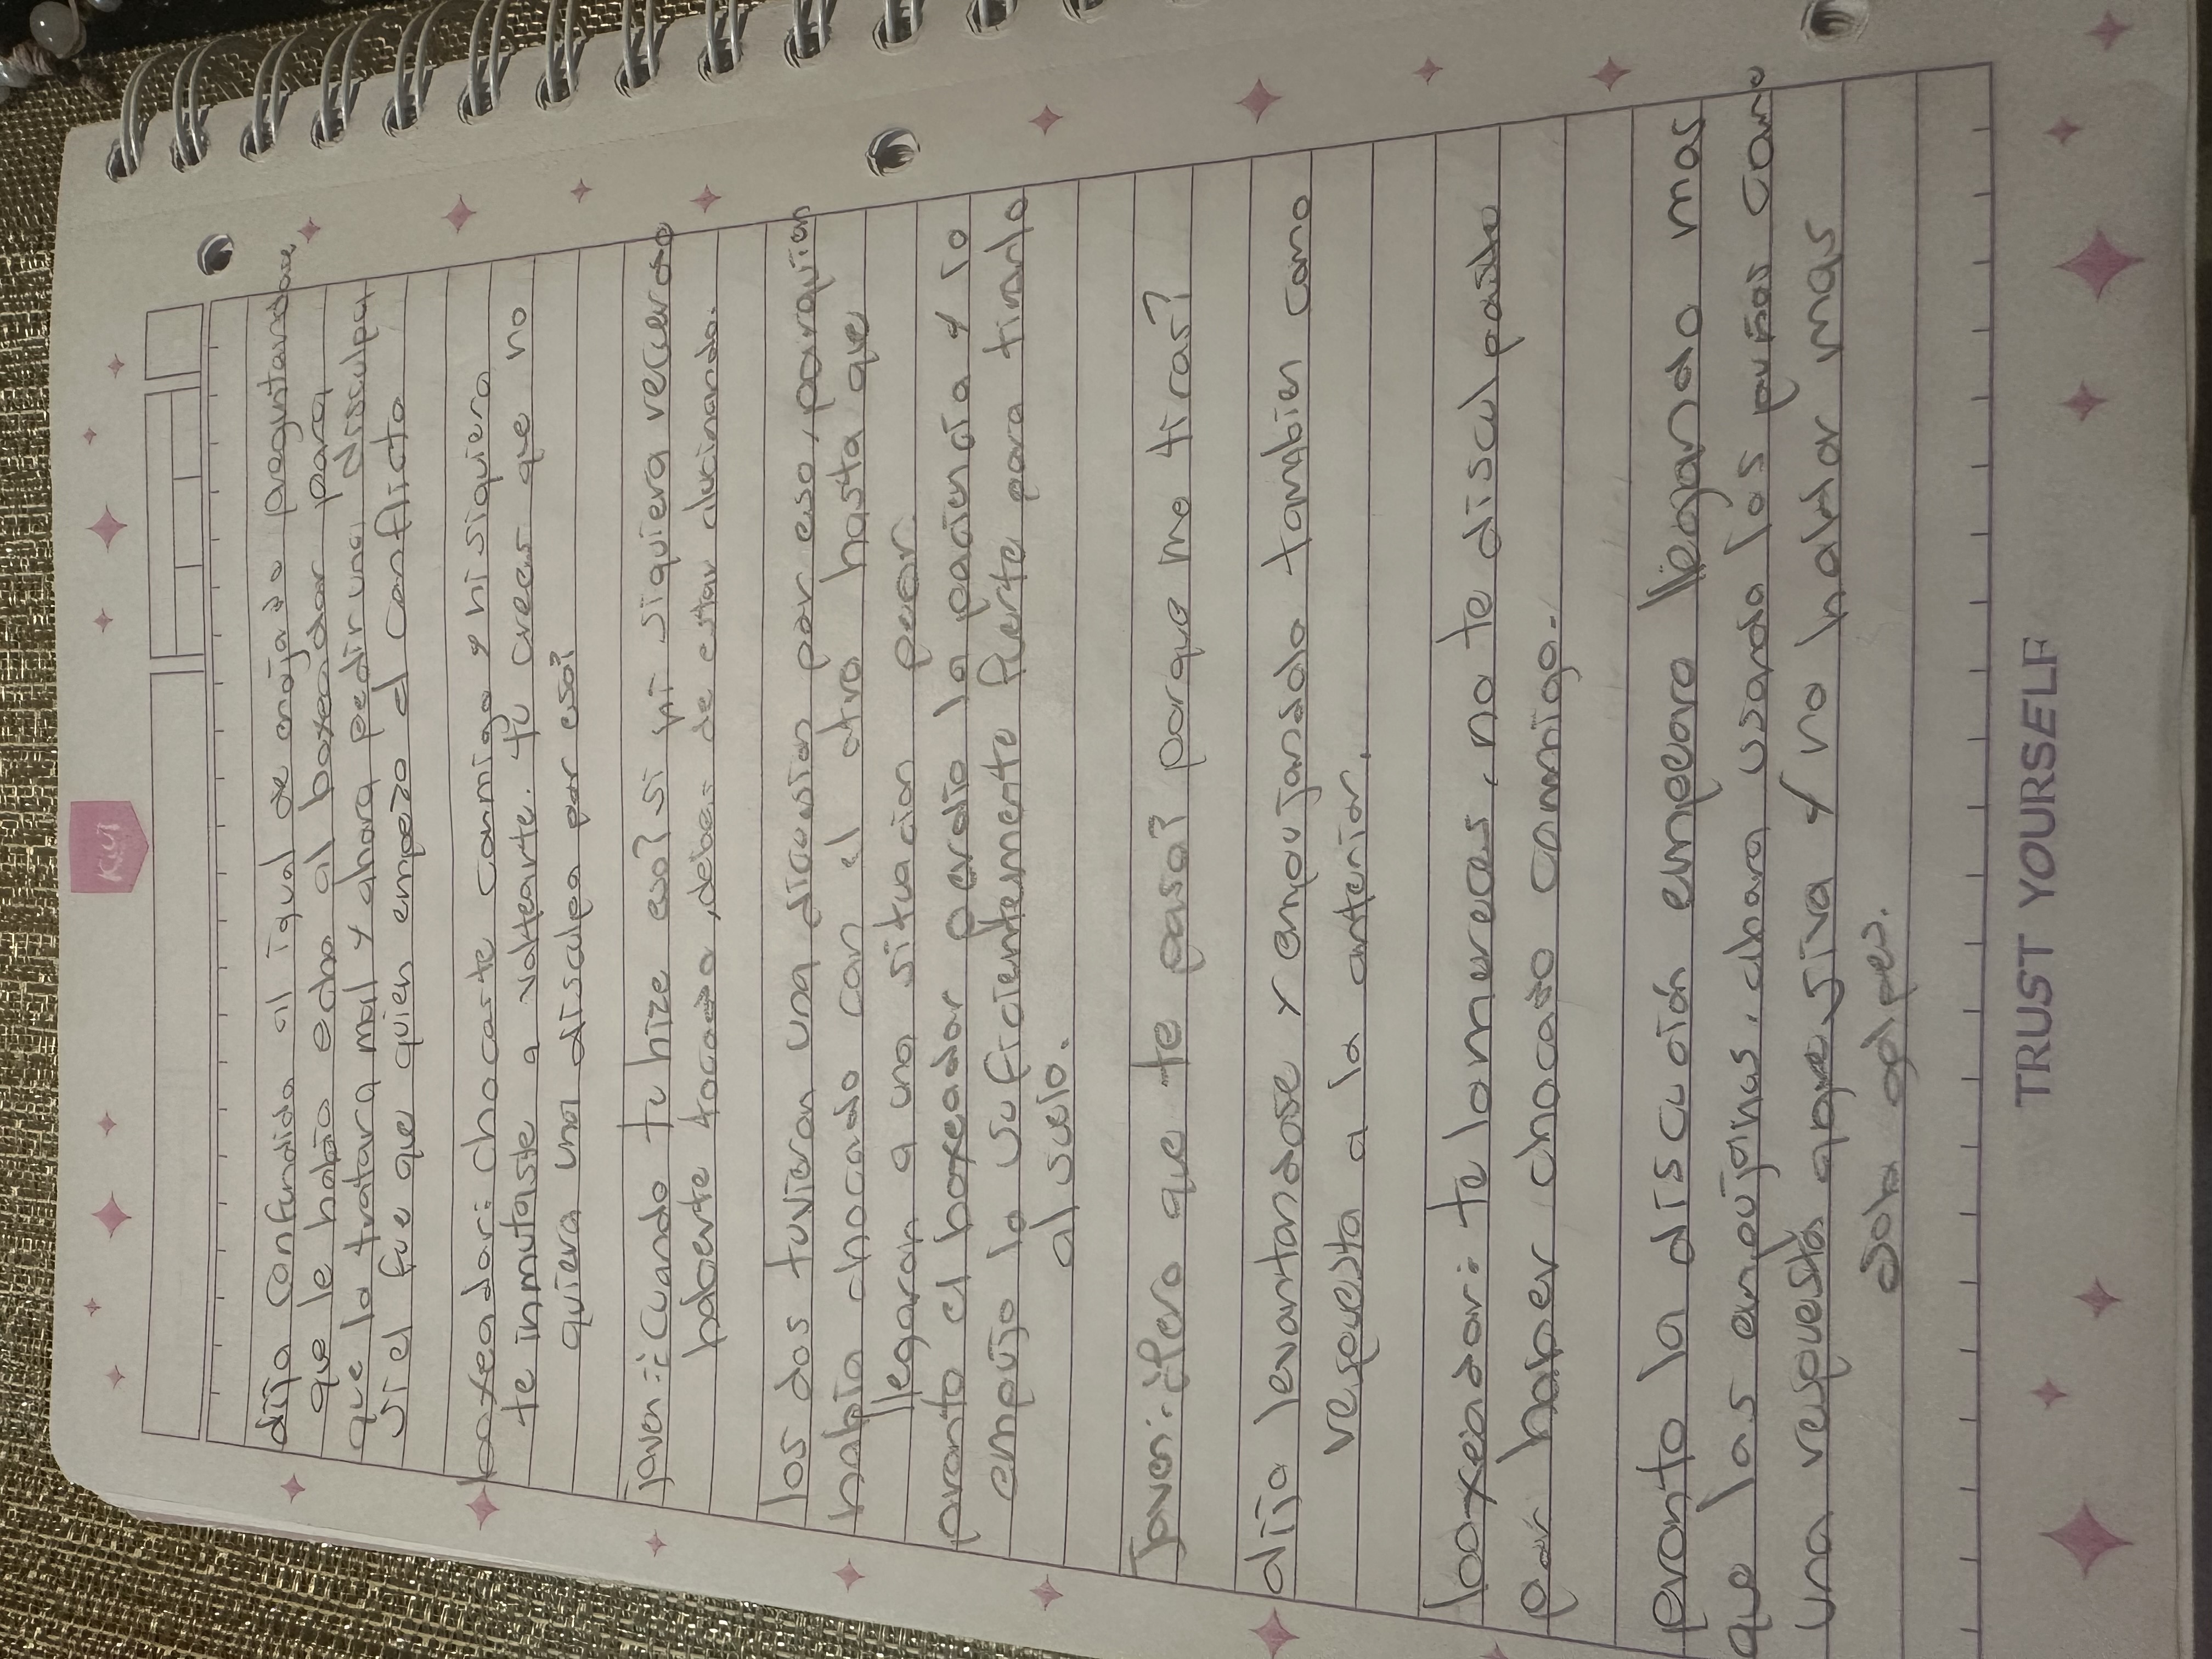 dijo confundido al igual de enojado preguntandose
que le habia echo al boxeador para
que lo tratara mal y ahora pedir una disculpa
si el fue que quien empezo el conflicto
boxeador: chocaste conmigo y ni siquiera
te inmutaste a voltearte. tu crees que no
quiera una disculpa por eso?
joven: ¿Cuando tu hize eso? si ni siquiera recuerdo
haberte tocado, debes de estar alucinando.
los dos tuvieron una dicusion por eso, por quien
habia chocado con el otro hasta que
llegaron a una situacion peor.
pronto el boxeador perdio la paciencia y lo
empujo lo suficientemente fuerte para tirarlo
al suelo.
Joven: ¿Pero que te pasa? porque me tiras?
dijo levantandose y empujandolo tambien como
respuesta a la anterior.
boxeador: te lo mereces, no te disculpaste
por haber chocado conmigo.
pronto la discución empeoro llegando mas
que las empujones, ahora usando los puños como
una respuesta agresiva y no hablar mas
solo golpes.
TRUST YOURSELF